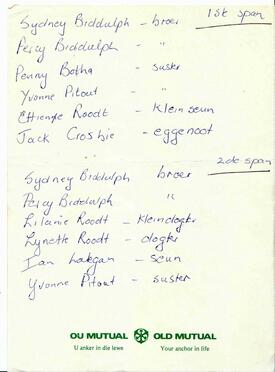 1st span
Sydney Biddulph - broer
Percy Biddulph - "
Penny Botha - suster
Yvonne Pitout - "
Ettienne Roodt - kleinseun
Jack Crosbie - eggenoot
2de span
Sydney Biddulph broer
Percy Biddulph "
Lilanie Roodt - kleindogter
Lynette Roodt - dogter
Ian - seun
Yvonne Pitout - suster
OU MUTUAL OLD MUTUAL
U anker in die lewe Your anchor in life